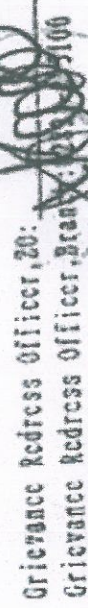 Grievance Redress Officer, ZO:
Grievance Redress Officer, 9100